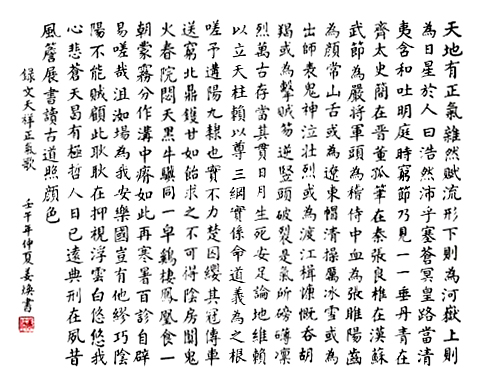 天地有正氣雜然賦流形下則為河嶽上則
為日星於人曰浩然沛乎塞蒼冥皇路當清
夷含和吐明庭時窮節乃見一一垂丹青在
齊太史簡在晉董狐筆在秦張良椎在漢蘇
武節為嚴將軍頭為嵇侍中血為張睢陽齒
為顏常山舌或為遼東帽清操厲冰雪或為
出師表鬼神泣壯烈或為渡江楫慷慨吞胡
羯或為擊賊笏逆豎頭破裂是氣所磅礴凜
烈萬古存當其貫日月生死安足論地維賴
以立天柱賴以尊三綱實係命道義為之根
嗟予遘陽九隸也實不力楚囚纓其冠傳車
送窮北鼎鑊甘如飴求之不可得陰房闃鬼
火春院閟天黑牛驥同一皁雞棲鳳凰食一
朝蒙霧分作溝中瘠如此再寒暑百沴自辟
易嗟哉沮洳場為我安樂國豈有他繆巧陰
陽不能賊顧此耿耿在仰視浮雲白悠悠我
心悲蒼天曷有極哲人日已遠典刑在夙昔
風簷展書讀古道照顏色
錄文天祥正氣歌 壬午年仲夏姜煥書